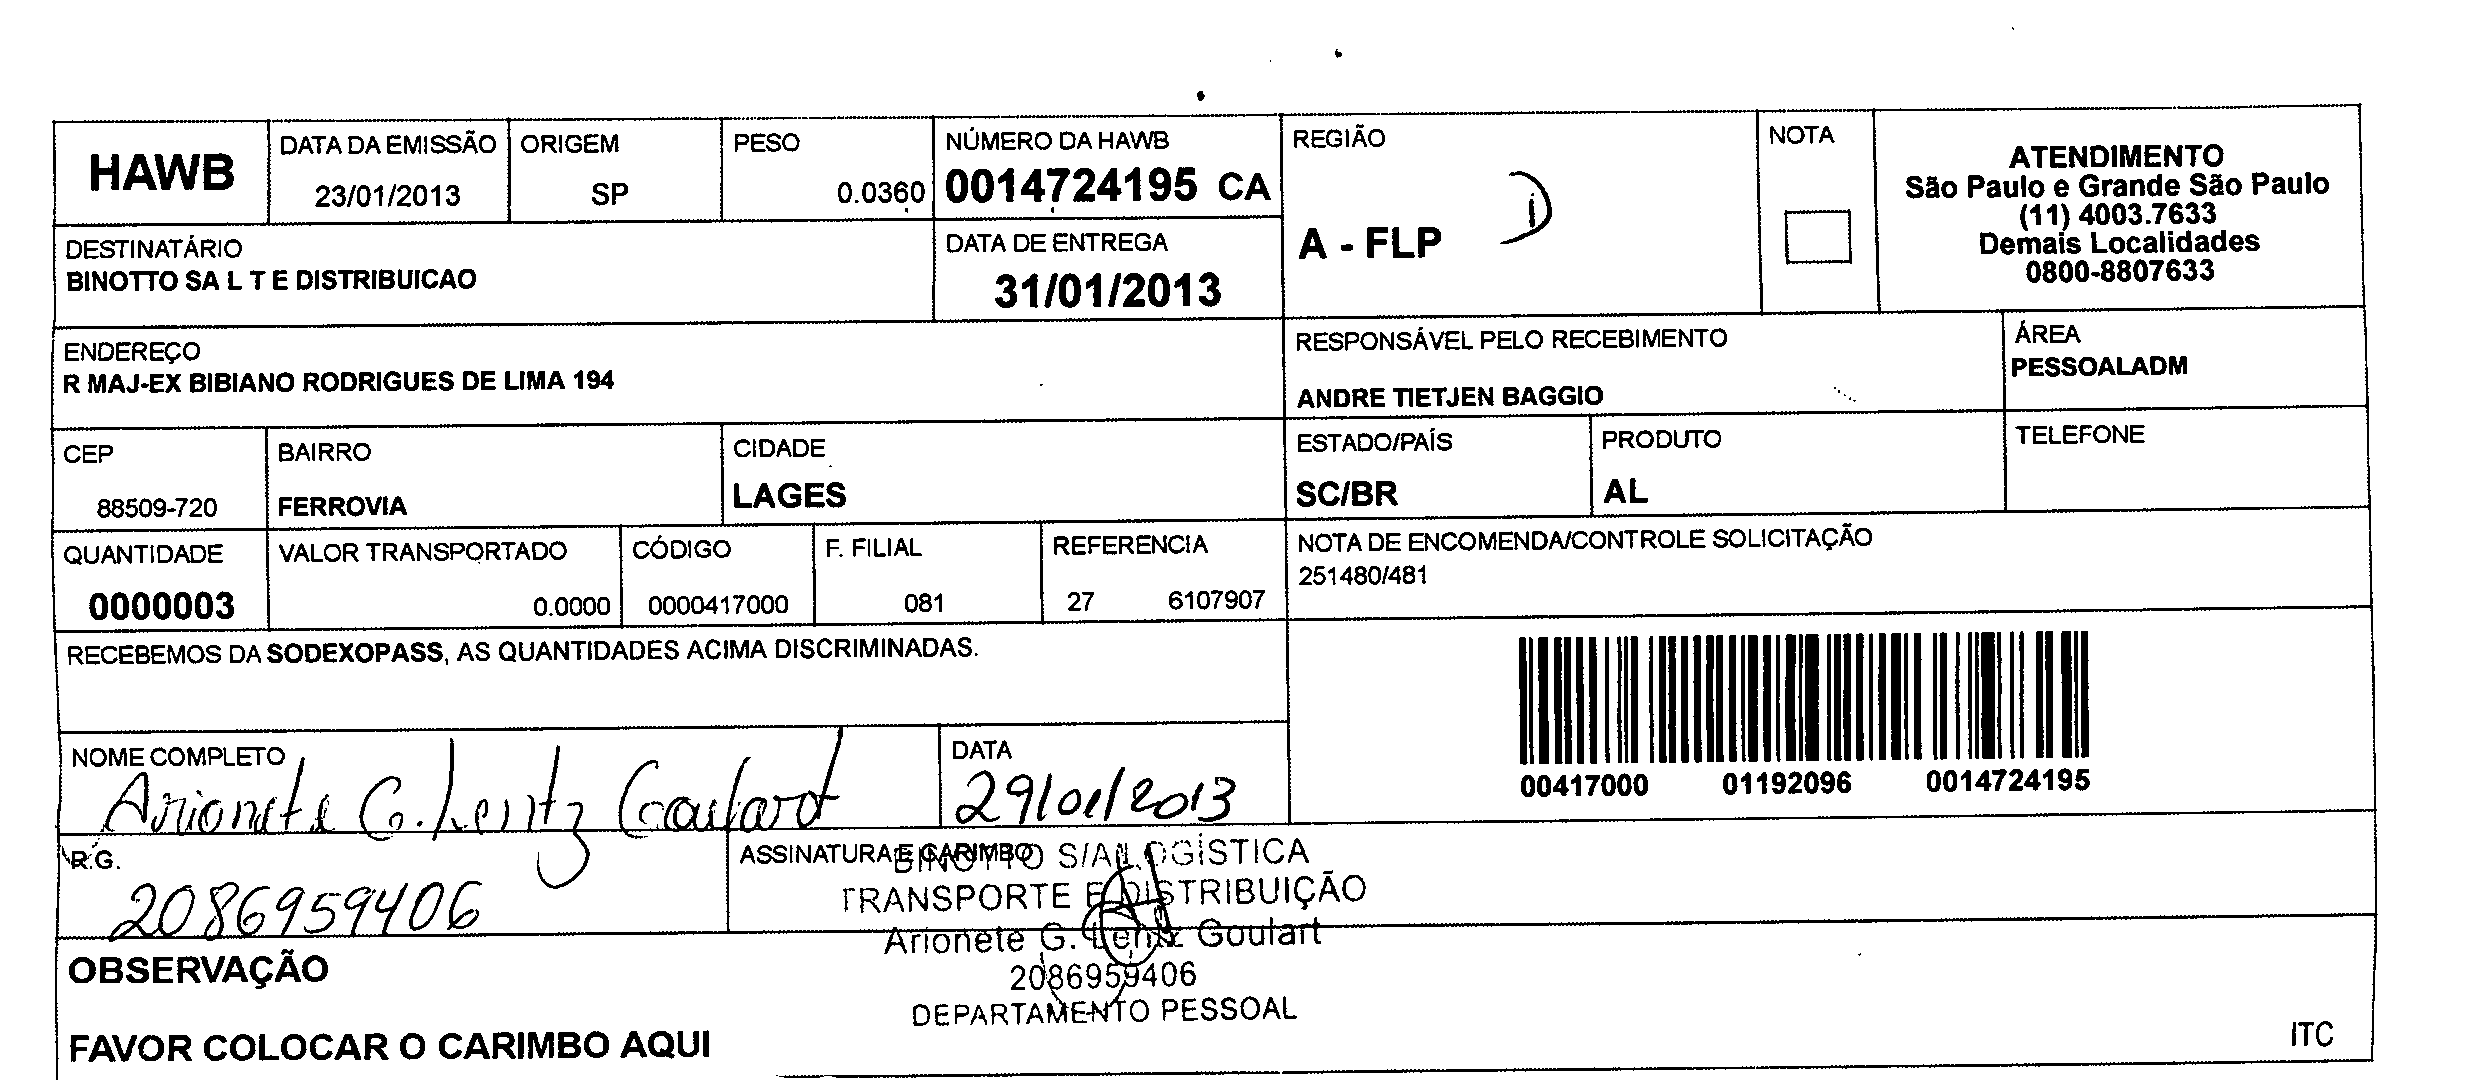 HAWB
DATA DA EMISSÃO
23/01/2013
ORIGEM
SP
PESO
0.0360
NÚMERO DA HAWB
0014724195 CA
REGIÃO
A - FLP
NOTA
ATENDIMENTO
São Paulo e Grande São Paulo
(11) 4003.7633
Demais Localidades
0800-8807633
DESTINATÁRIO
BINOTTO SA L T E DISTRIBUICAO
DATA DE ENTREGA
31/01/2013
ENDEREÇO
R MAJ-EX BIBIANO RODRIGUES DE LIMA 194
RESPONSÁVEL PELO RECEBIMENTO
ANDRE TIETJEN BAGGIO
ÁREA
PESSOALADM
CEP
88509-720
BAIRRO
FERROVIA
CIDADE
LAGES
ESTADO/PAÍS
SC/BR
PRODUTO
AL
TELEFONE
QUANTIDADE
0000003
VALOR TRANSPORTADO
0.0000
CÓDIGO
0000417000
F. FILIAL
081
REFERENCIA
27 6107907
NOTA DE ENCOMENDA/CONTROLE SOLICITAÇÃO
251480/481
RECEBEMOS DA SODEXOPASS, AS QUANTIDADES ACIMA DISCRIMINADAS.
00417000 01192096 0014724195
NOME COMPLETO
Arionete G. Lentz Goulart
DATA
29/01/2013
R.G.
2086959406
ASSINATURA E CARIMBO
BINOTTO S/A LOGÍSTICA
TRANSPORTE E DISTRIBUIÇÃO
Arionete G. Lentz Goulart
2086959406
DEPARTAMENTO PESSOAL
OBSERVAÇÃO
FAVOR COLOCAR O CARIMBO AQUI
ITC